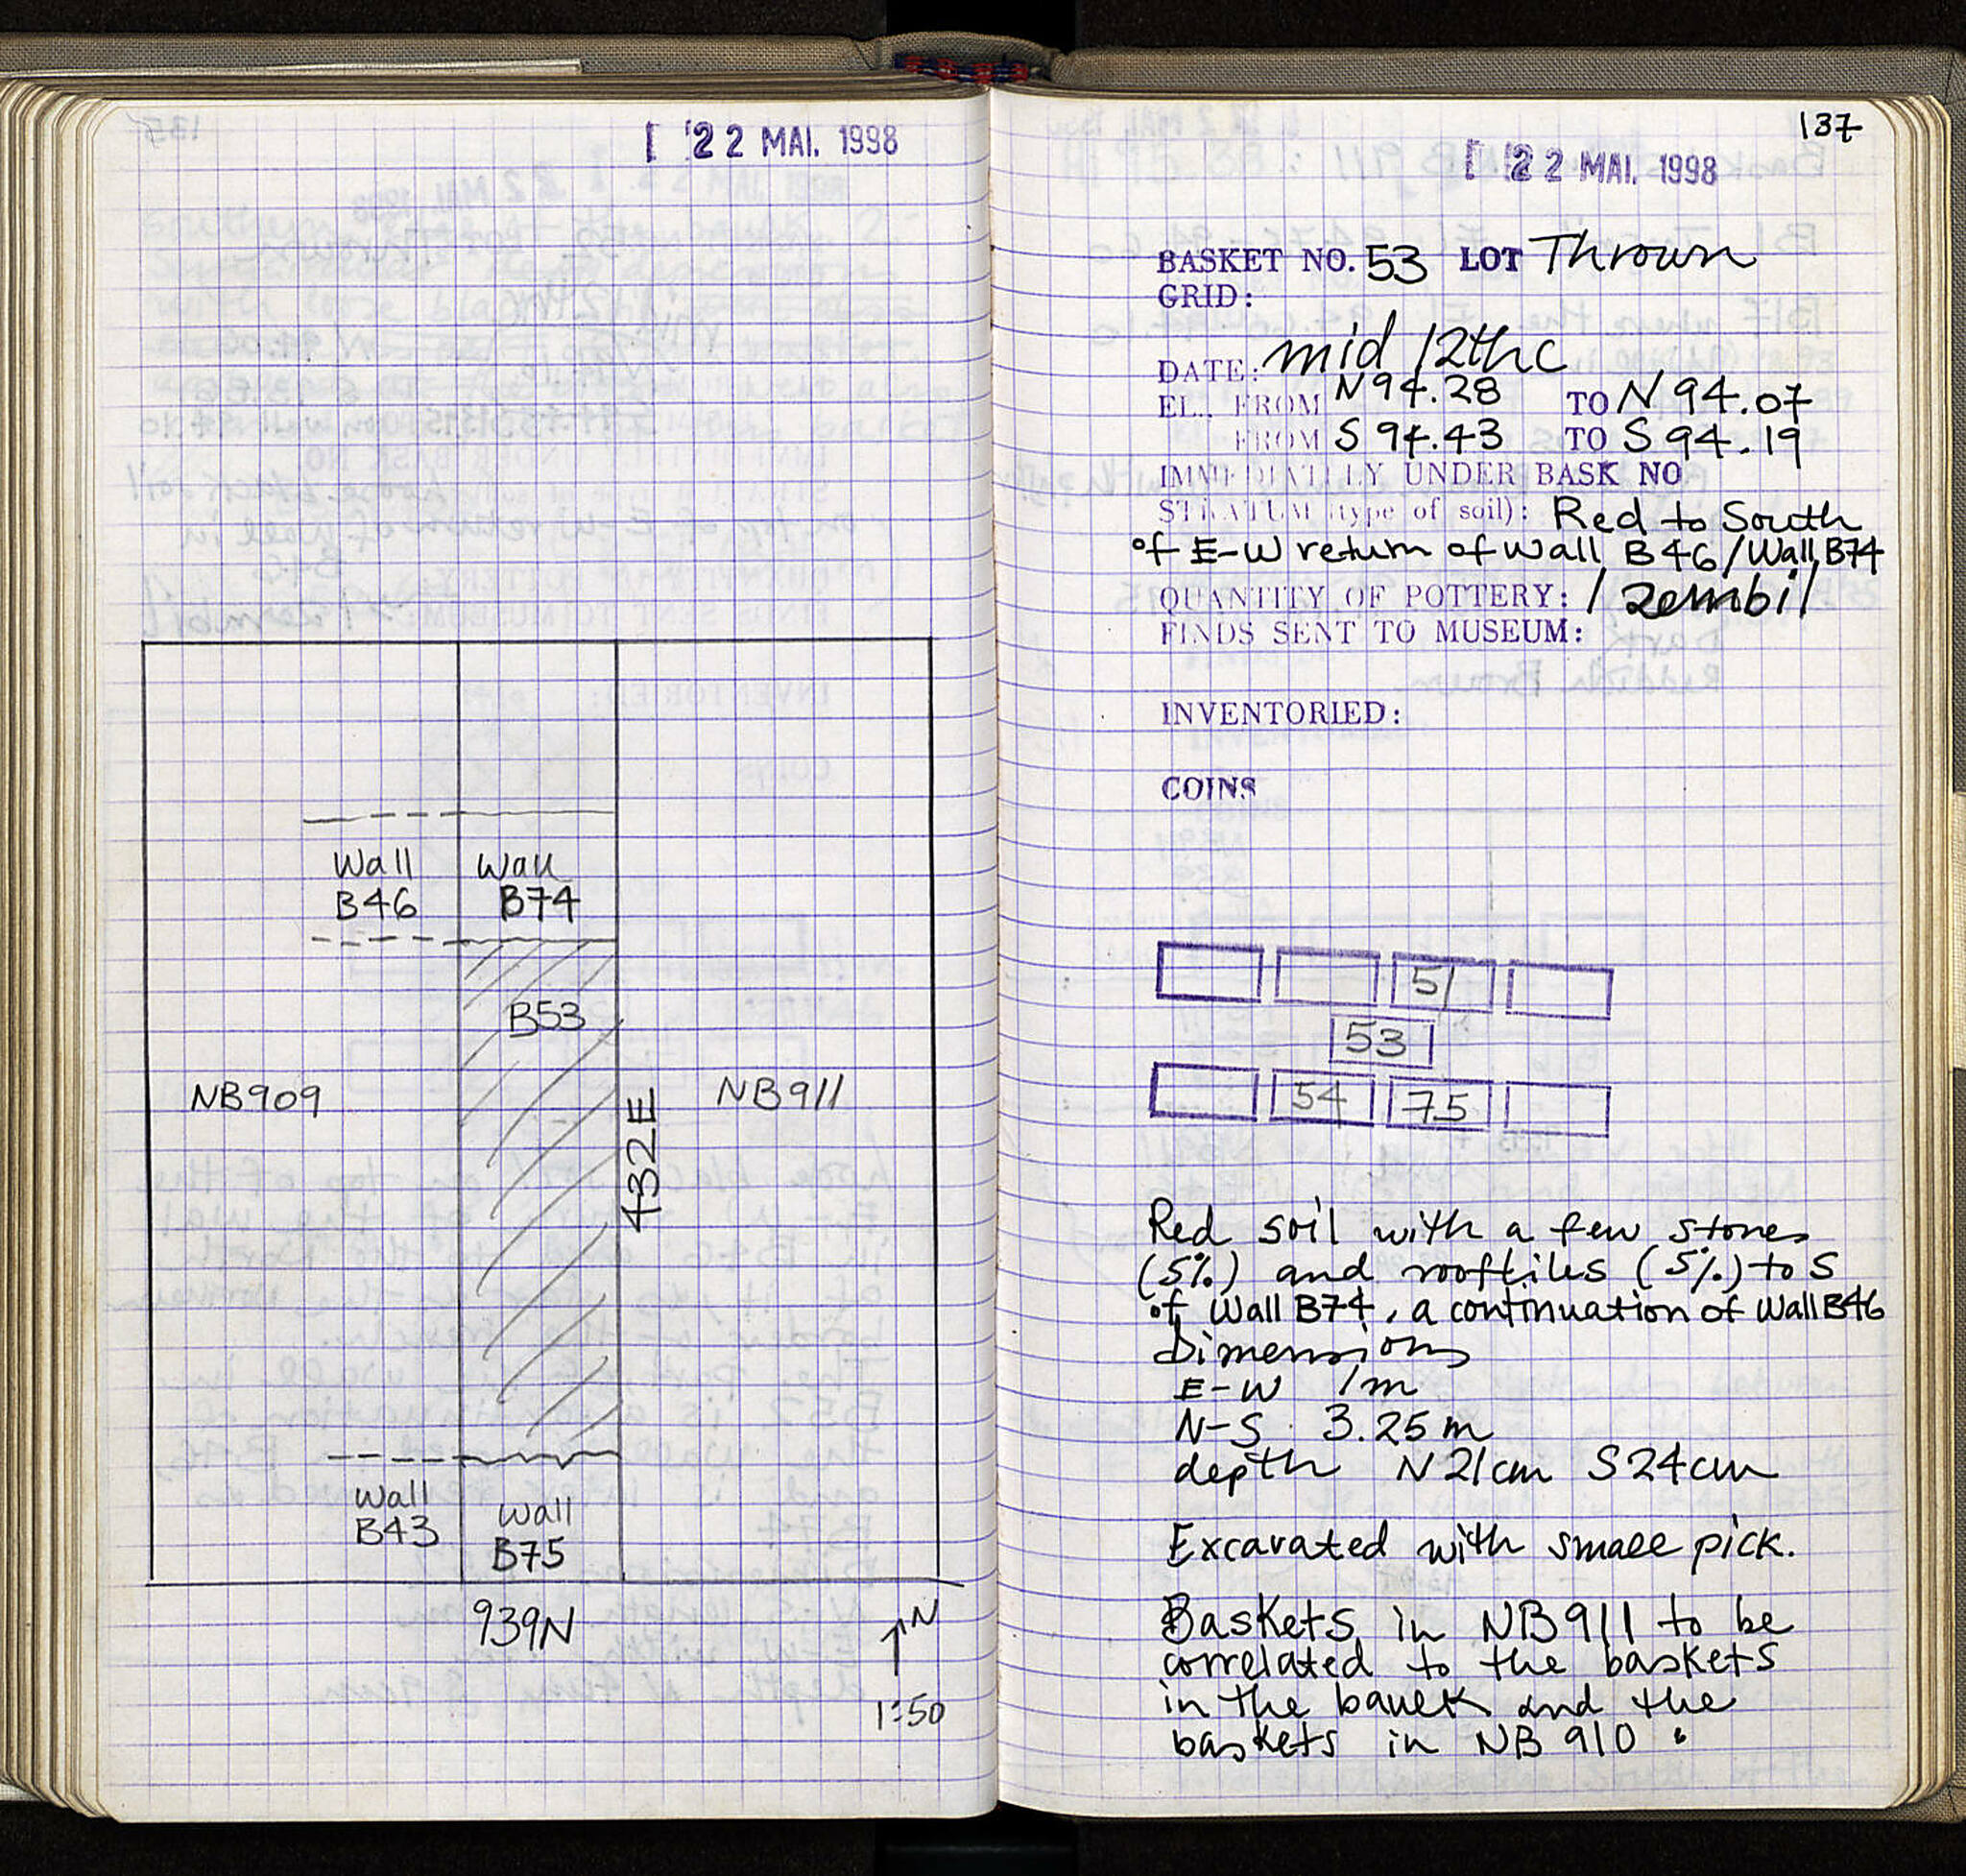 22 MAI. 1998
Wall Wall
B46 B74
B53
NB909 NB911
432E
Wall Wall
B43 B75
939N
N
1:50
137
22 MAI. 1998
BASKET NO. 53 LOT Thrown
GRID:
DATE: mid 12thc
EL., FROM N94.28 TO N 94.07
FROM S 94.43 TO S 94.19
IMMEDIATELY UNDER BASK NO
STRATUM (type of soil): Red to South
of E-W return of wall B46/Wall B74
QUANTITY OF POTTERY: 1 zembil
FINDS SENT TO MUSEUM:
INVENTORIED:
COINS
51
53
54 75
Red soil with a few stones
(5%) and rooftiles (5%) to S
of Wall B74, a continuation of Wall B46
Dimensions
E-W 1m
N-S 3.25m
depth N 21cm S 24cm
Excavated with small pick.
Baskets in NB911 to be
correlated to the baskets
in the baulk and the
baskets in NB 910 .